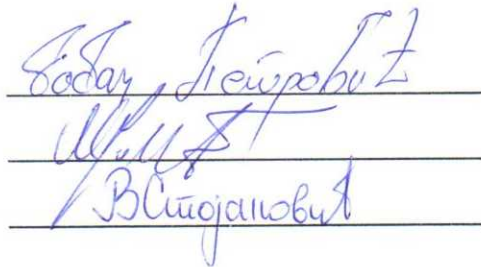 Бобан Петровић
ВСтојановић